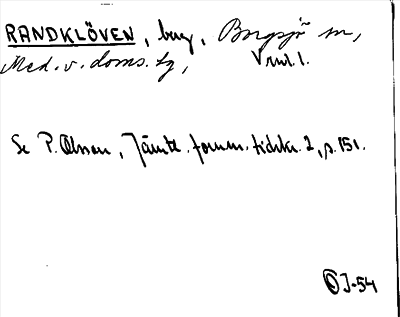 RANDKLÖVEN, berg, Borgsjö sn,
Med. v. doms. tg,
Se P. Olsson, Jämtl. fornm. tidskr. 2, s. 151.
OJ-54